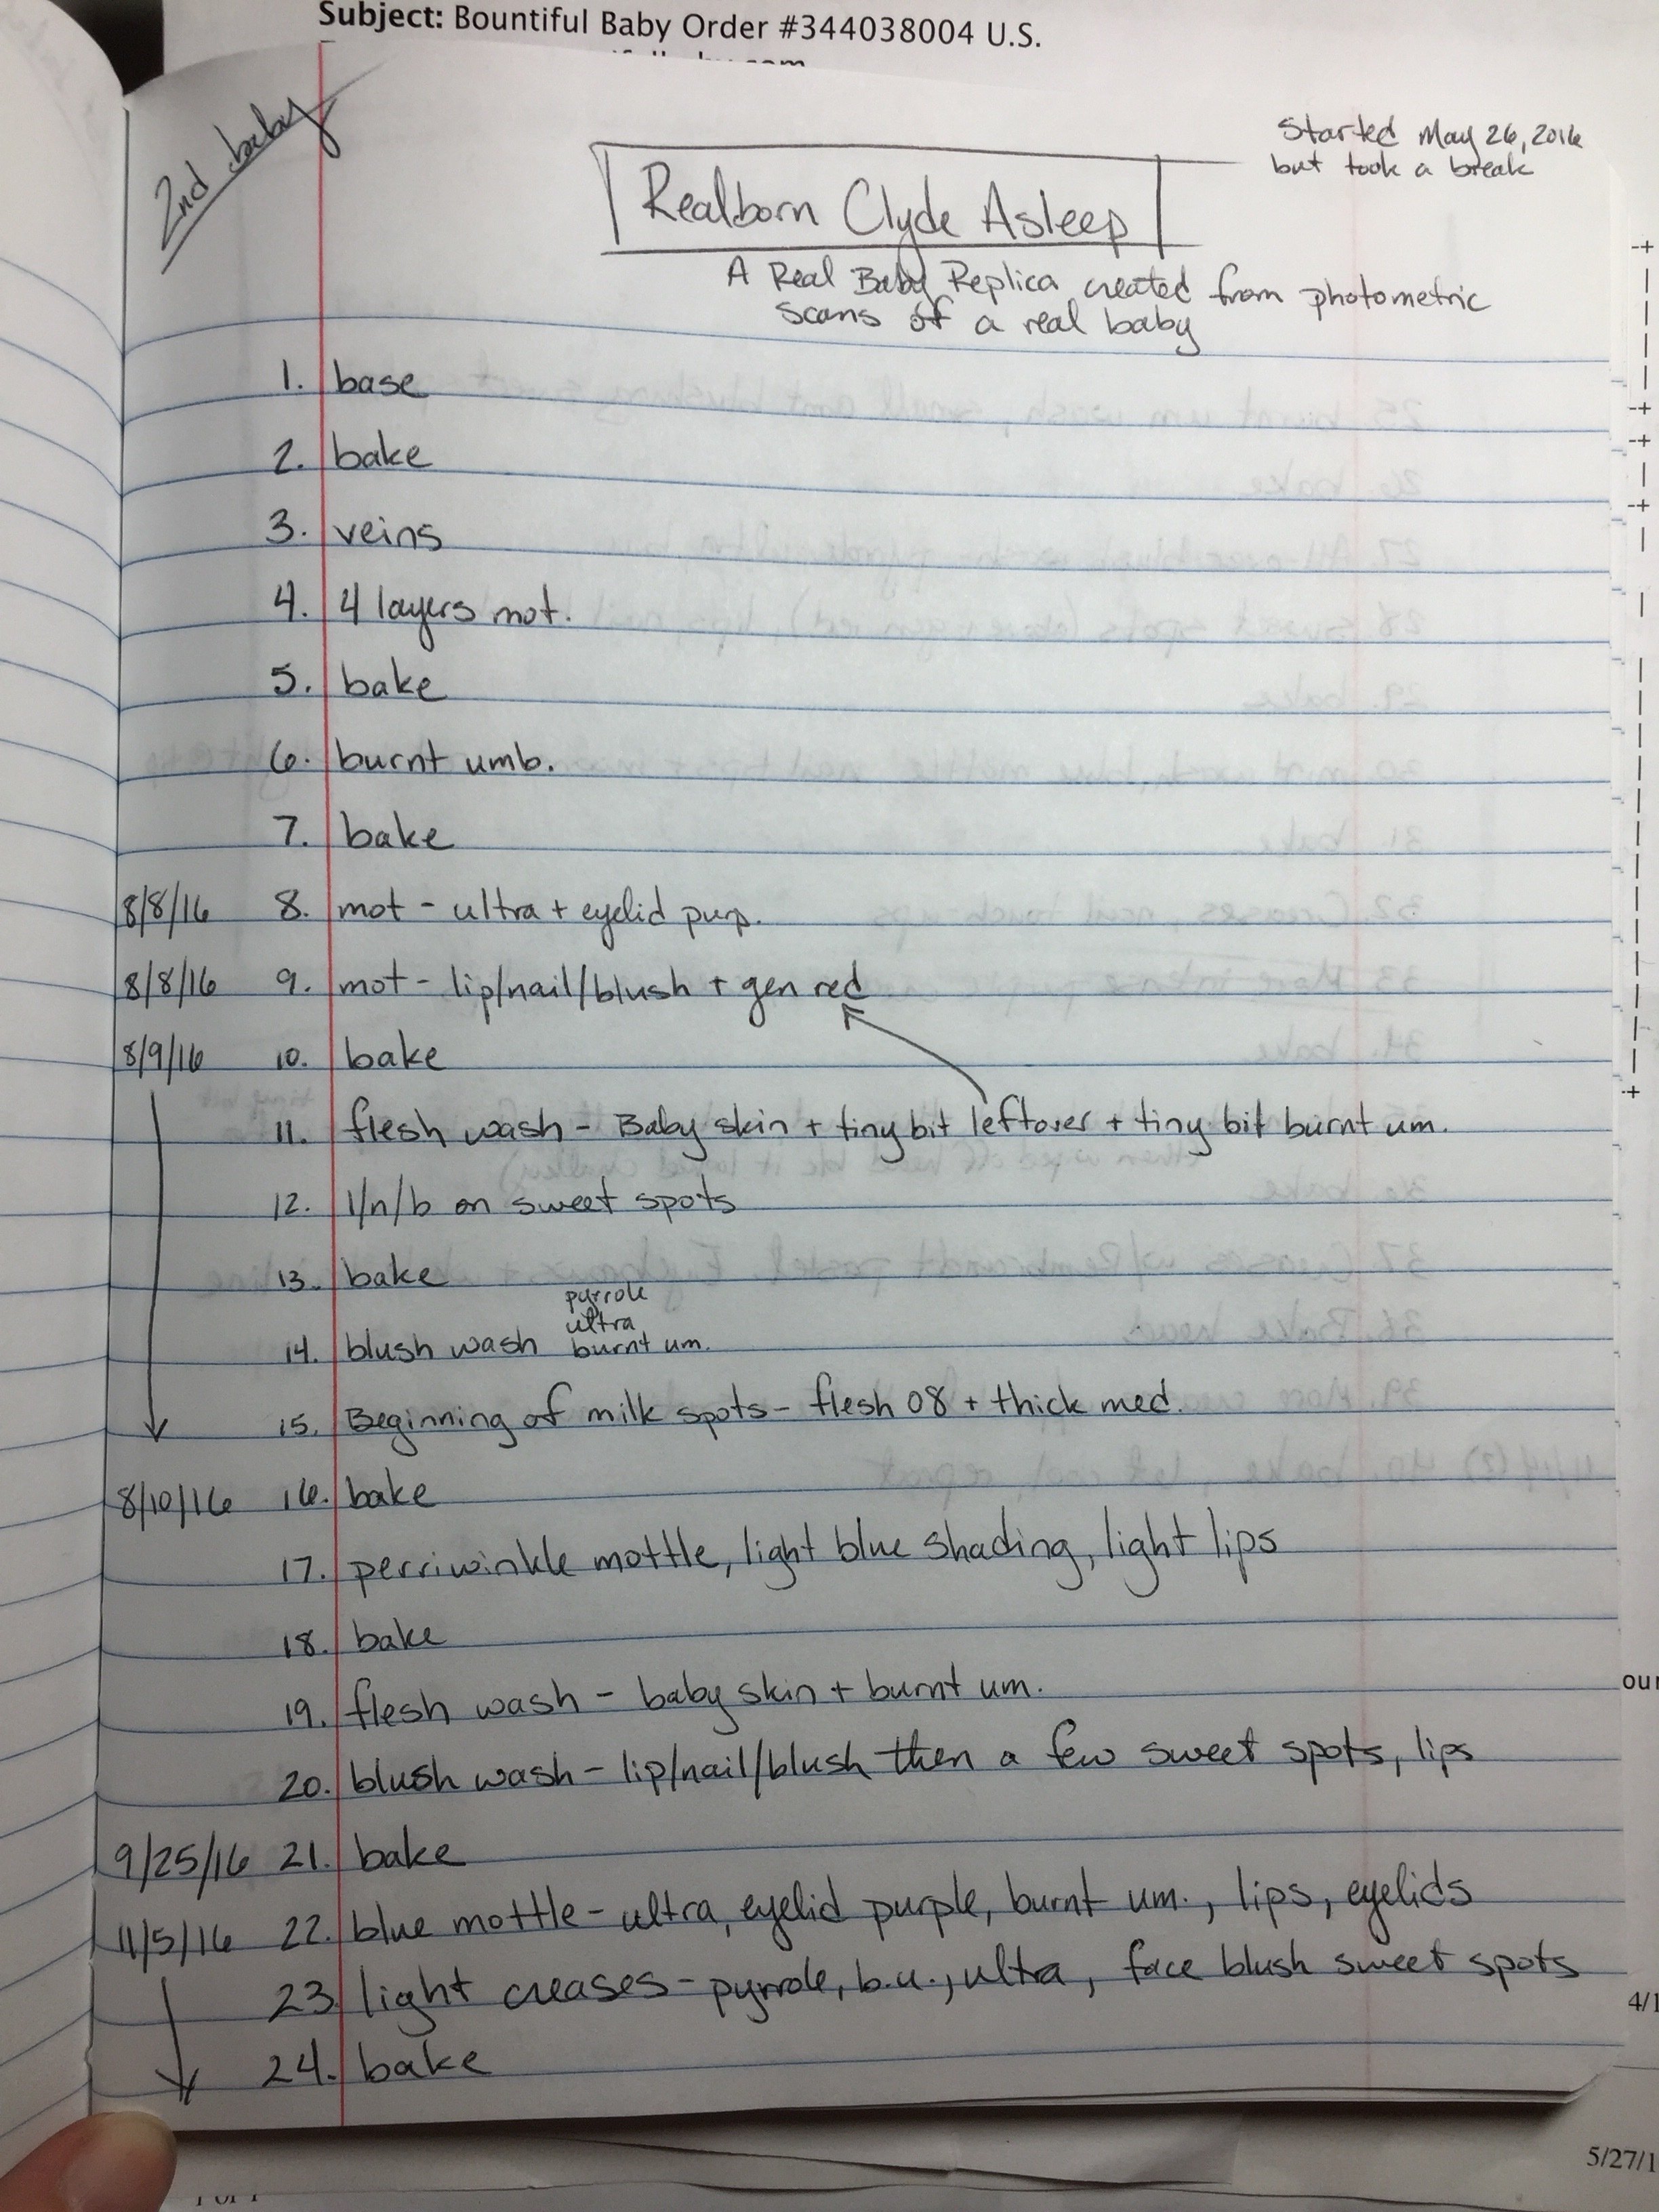 Subject: Bountiful Baby Order #344038004 U.S.
2nd baby
Started May 26, 2016
but took a break
Realborn Clyde Asleep
A Real Baby Replica created from photometric
scans of a real baby
1. base
2. bake
3. veins
4. 4 layers mot.
5. bake
6. burnt umb.
7. bake
8/8/16 8. mot - ultra + eyelid purp.
8/8/16 9. mot - lip/nail/blush + gen red
8/9/16 10. bake
11. flesh wash - Baby skin + tiny bit leftover + tiny bit burnt um.
12. l/n/b on sweet spots
13. bake
pyrrole
ultra
14. blush wash burnt um.
15. Beginning of milk spots - flesh 08 + thick med.
8/10/16 16. bake
17. perriwinkle mottle, light blue shading, light lips
18. bake
19. flesh wash - baby skin + burnt um.
20. blush wash - lip/nail/blush then a few sweet spots, lips
9/25/16 21. bake
11/5/16 22. blue mottle - ultra, eyelid purple, burnt um., lips, eyelids
23. light creases - pyrrole, b.u., ultra, face blush sweet spots
24. bake
5/27/1